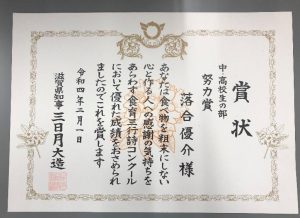 賞状
中・高校生の部
努力賞
落合優介様
あなたは食べ物を粗末にしない
心と作る人への感謝の気持ちを
あらわす食育三行詩コンクール
において優れた成績をおさめられ
ましたのでこれを賞します
令和四年二月一日
滋賀県知事 三日月大造